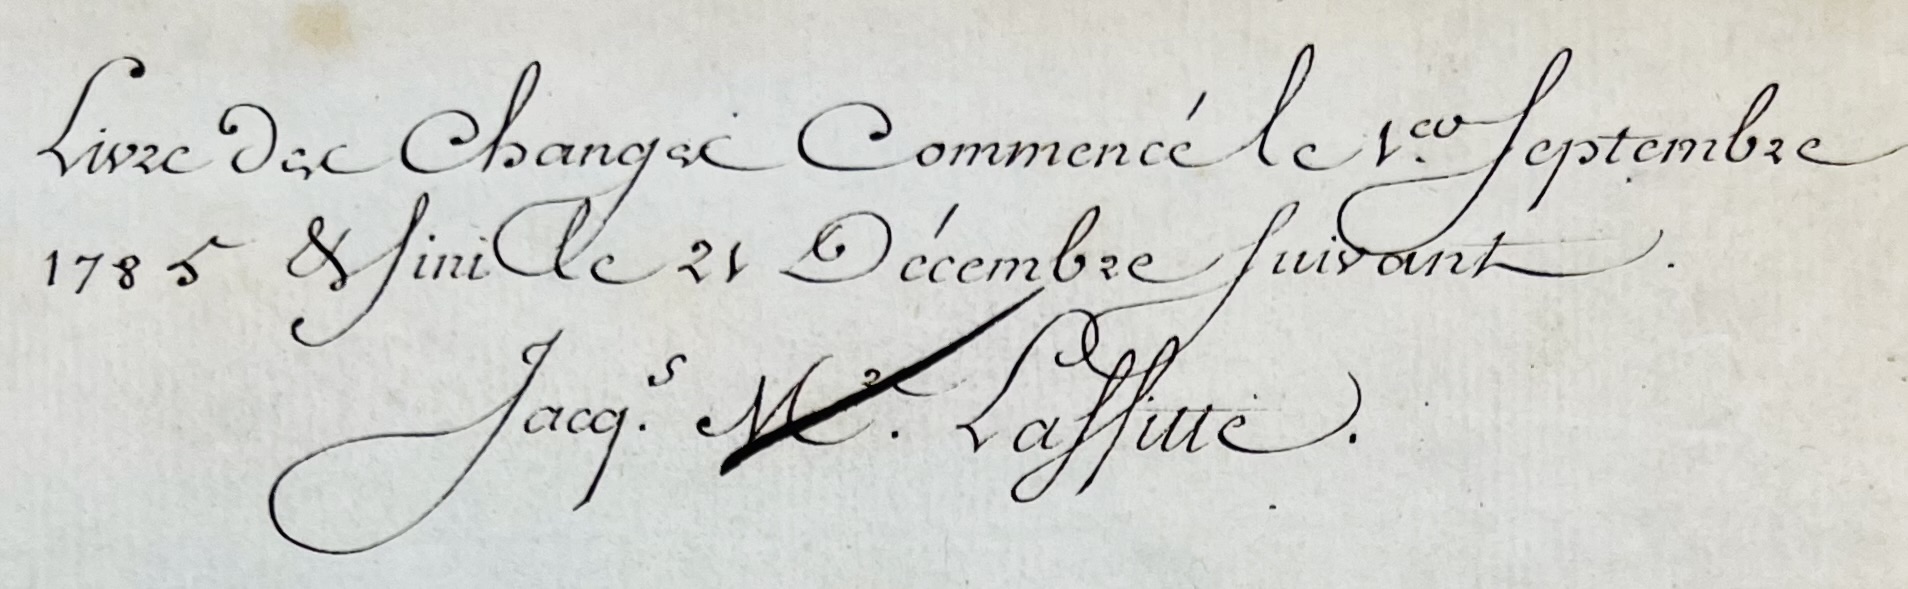 Livre des Changes Commencé le 1.er Septembre
1785 & fini le 21 Décembre suivant.
Jacq.s M.e Laffitte.